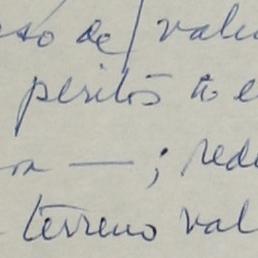 de / valu
peritos
— ; rede
terreno val